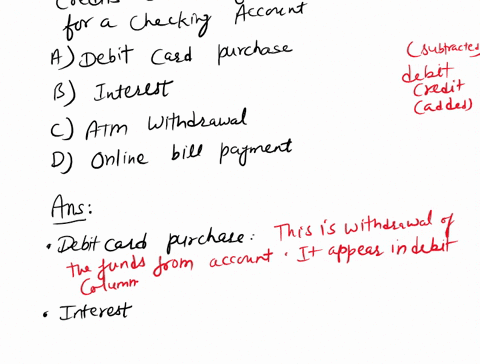 for a Checking Account
A) Debit Card purchase
B) Interest
C) ATM Withdrawal
D) Online bill payment
(subtracted
debit
Credit
(added)
Ans:
• Debit card purchase: This is withdrawal of
the funds from account. It appears in debit
Column
• Interest